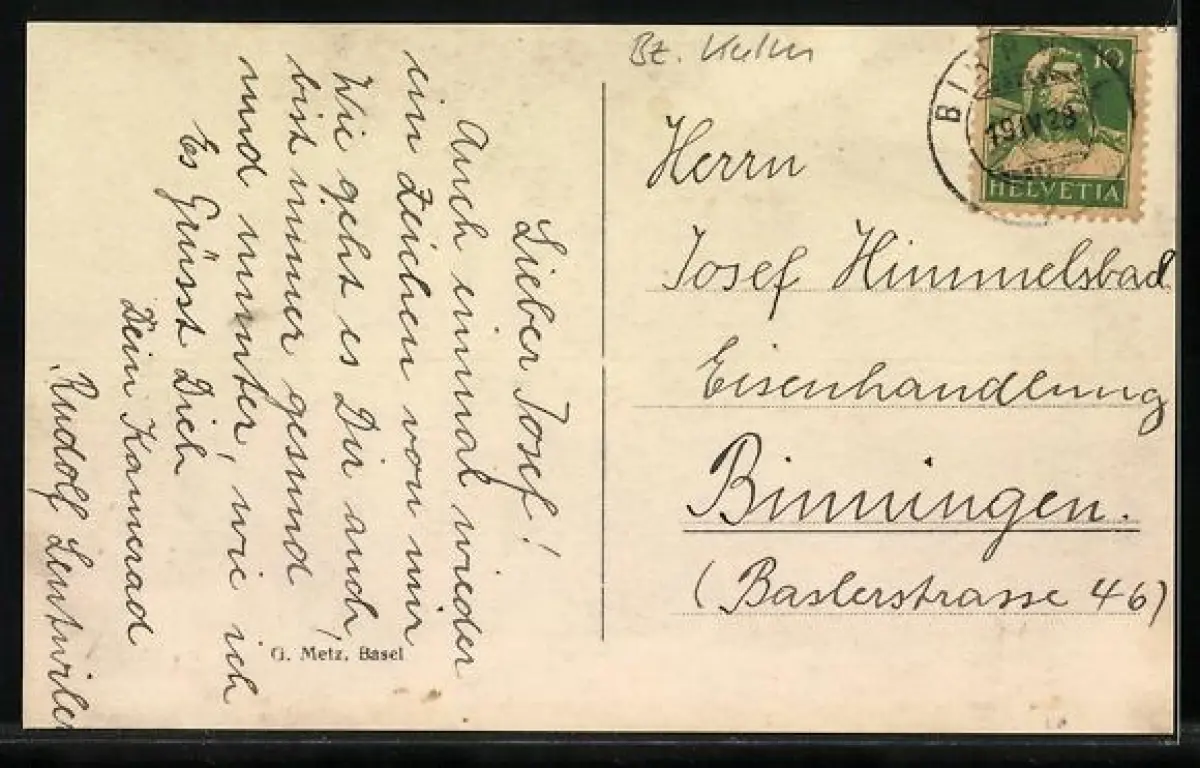 Lieber Josef!
Auch einmal wieder
ein Zeichen von mir
Wie geht es Dir auch,
bist immer gesund
und munter, wie ich
Es Grüsst Dich
Dein Kamerad
Rudolf
G. Metz, Basel
Bz. Kulm
Herrn
Josef Himmelsbad
Eisenhandlung
Binningen.
(Baslerstrasse 46)
10
HELVETIA
19 IV 28